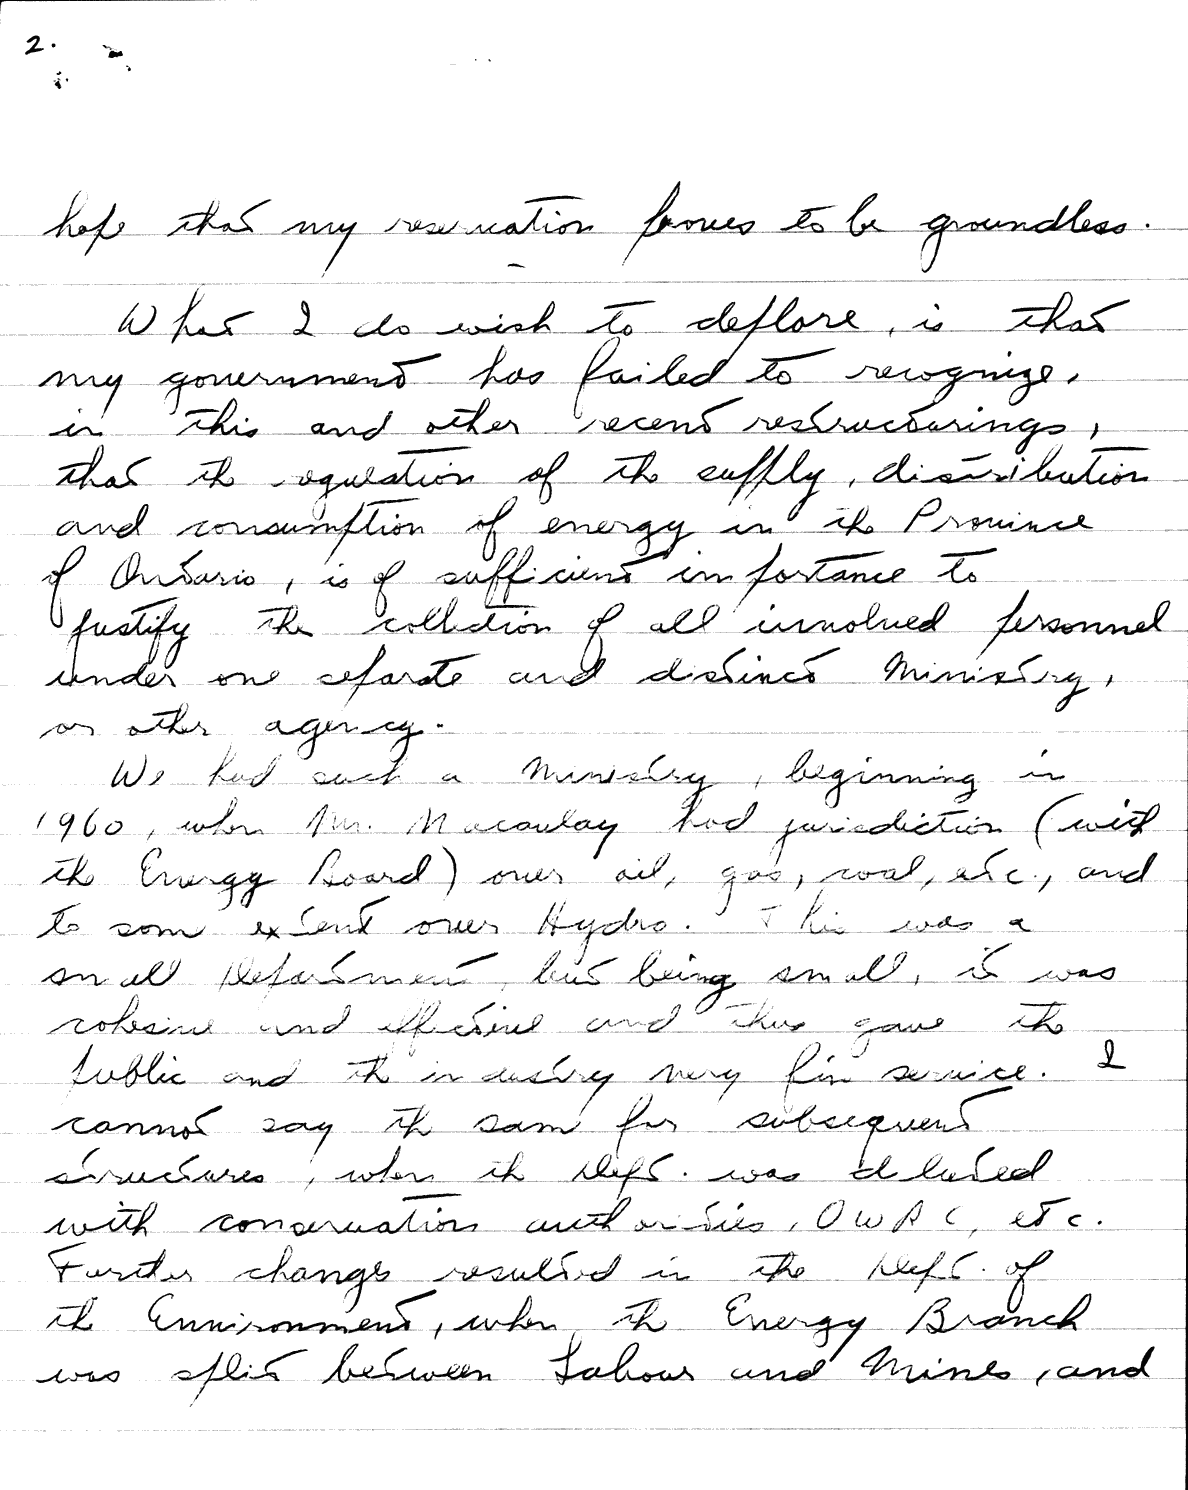 2.
hope that my reservation proves to be groundless.
What I do wish to deplore, is that
my government has failed to recognize,
in this and other recent restructurings,
that the regulation of the supply, distribution
and consumption of energy in the Province
of Ontario, is of sufficient importance to
justify the collection of all involved personnel
under one separate and distinct Ministry,
or other agency.
We had such a Ministry, beginning in
1960, when Mr. Macaulay had jurisdiction (with
the Energy Board) over oil, gas, coal, etc., and
to some extent over Hydro. This was a
small Department, but being small, it was
cohesive and effective and thus gave the
public and the industry very fine service. I
cannot say the same for subsequent
structures, when the Dept. was diluted
with conservation authorities, OWRC, etc.
Further changes resulted in the Dept. of
the Environment, when the Energy Branch
was split between Labour and Mines, and